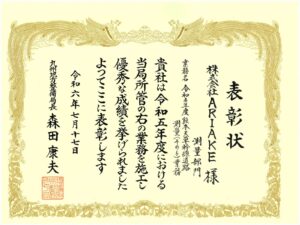 表彰状
測量部門
株式会社 ARIAKE 様
業務名 令和5年度熊本天草幹線道路
測量(その1)業務
貴社は令和五年度における
当局所管の右の業務を施工し
優秀な成績を挙げられました
よってここに表彰します
令和六年七月十七日
九州地方整備局長 森田康夫